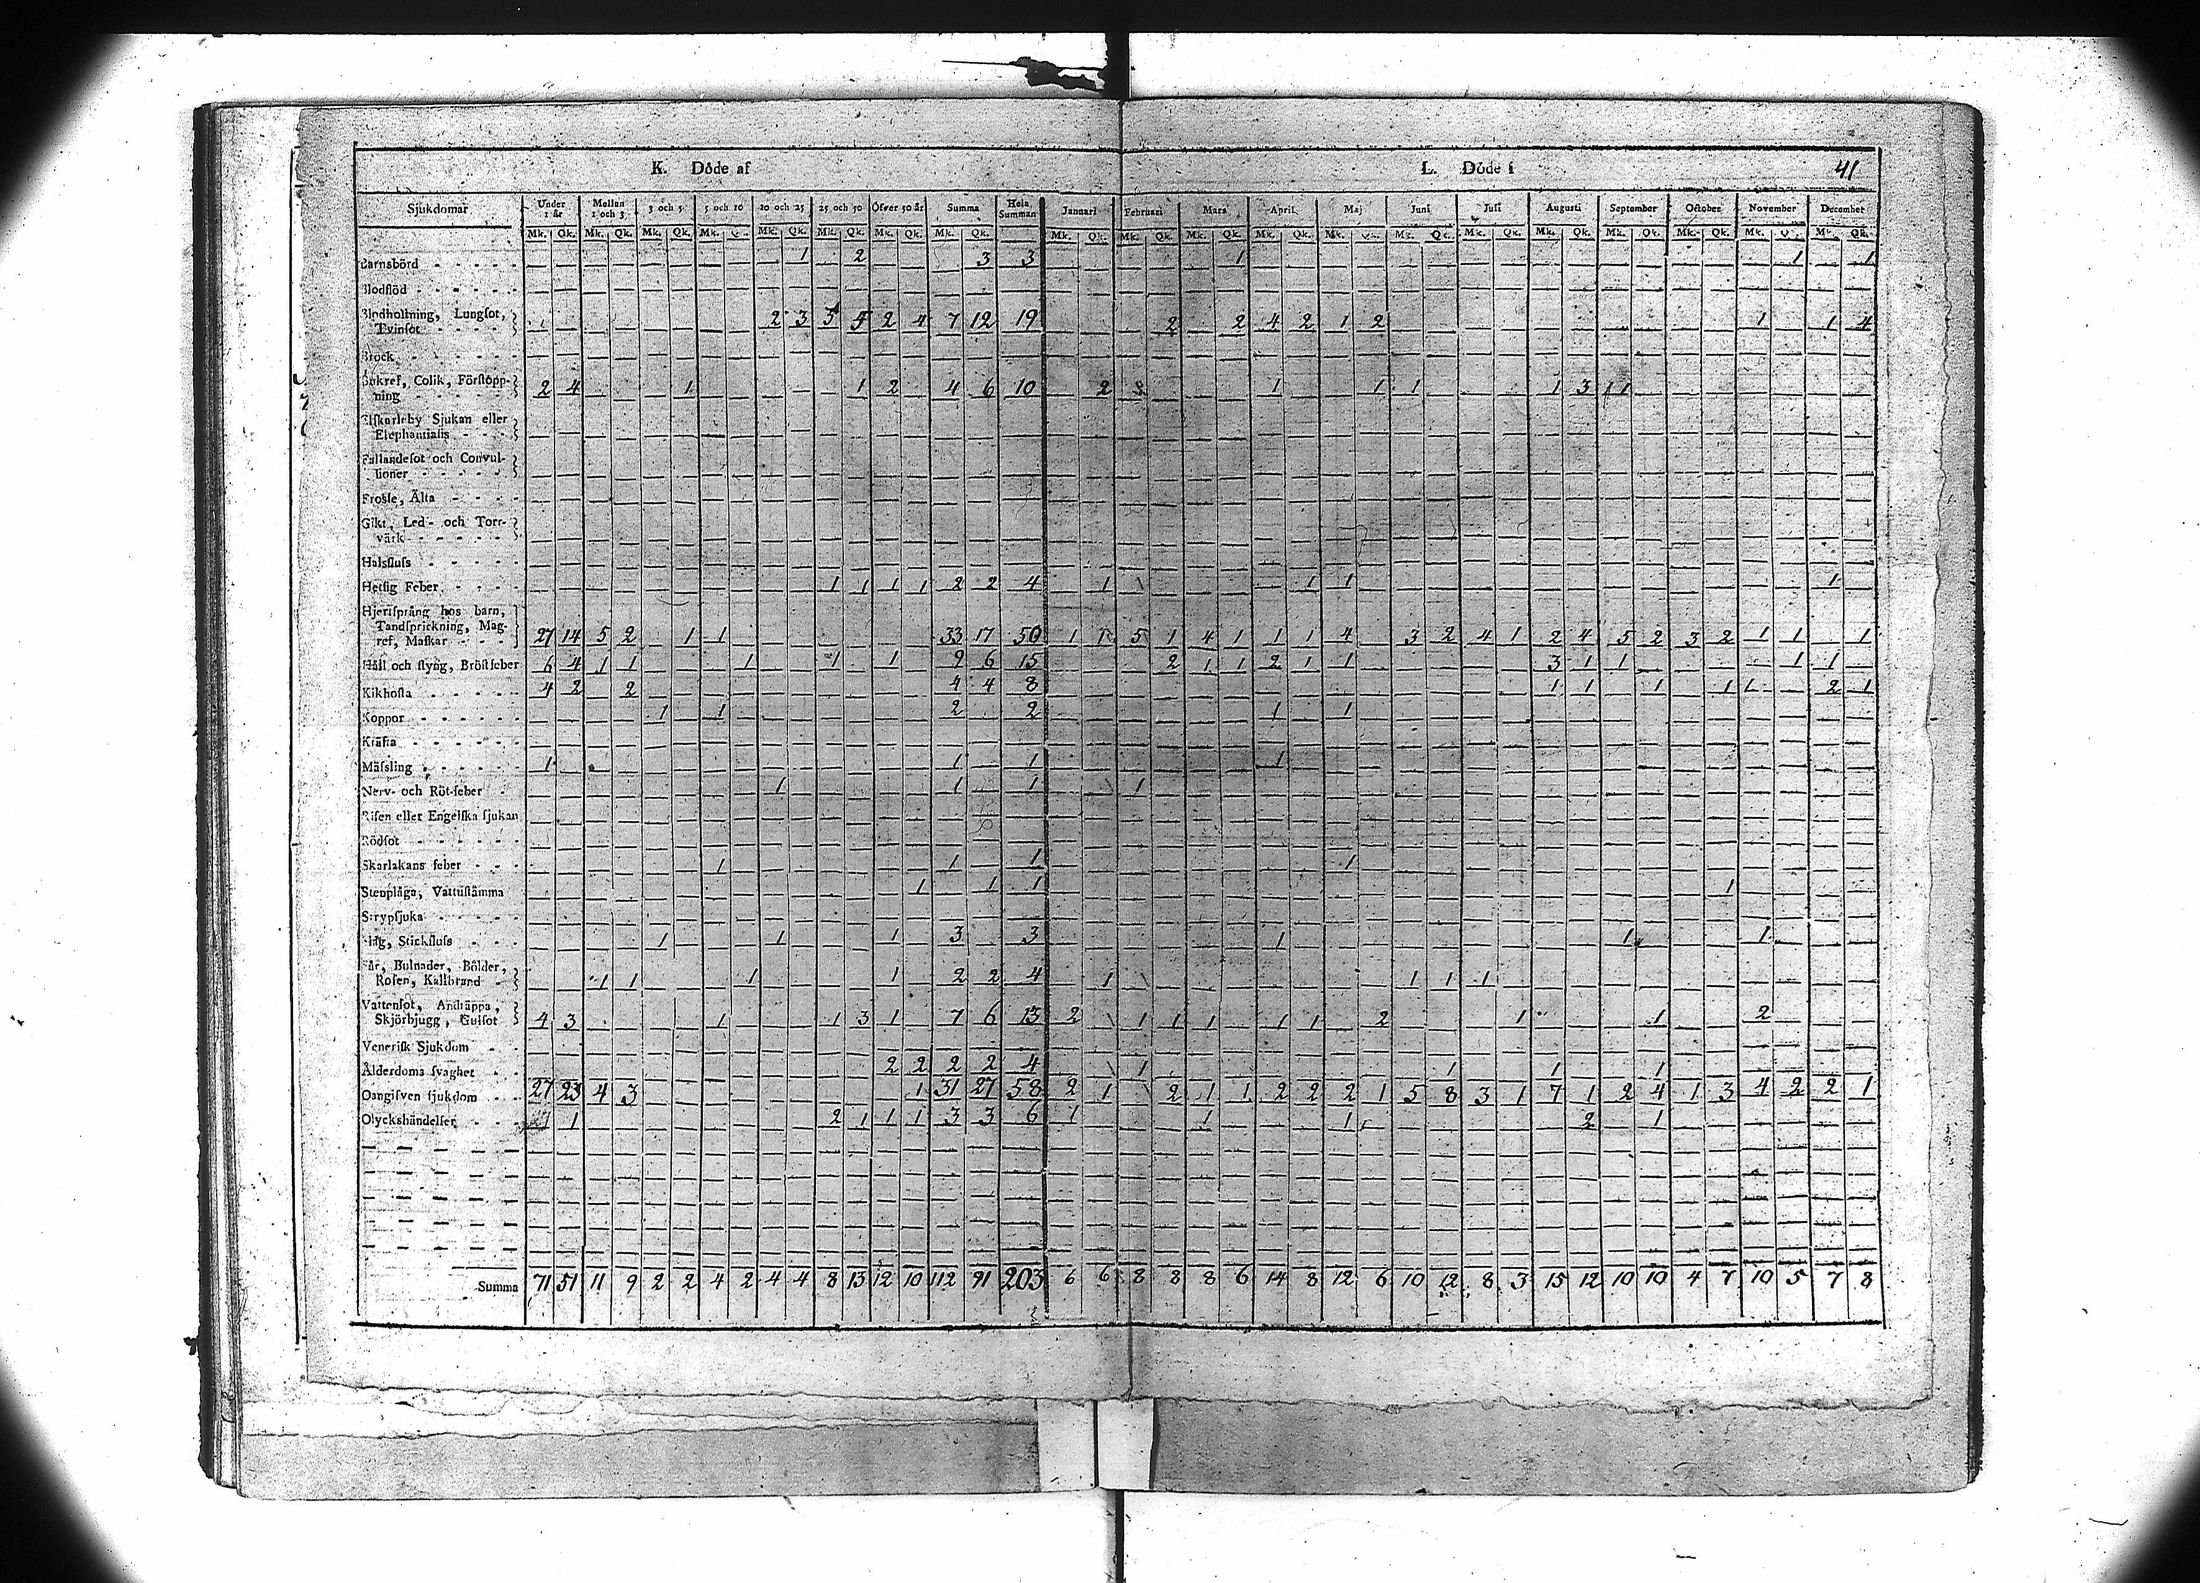 K. Döde af L. Döde i 41
Sjukdomar Under 1 år Mellan 1 och 3 3 och 5 5 och 10 10 och 25 25 och 50 Öfver 50 år Summa Hela Summan Januari Februari Mars April Maj Juni Juli Augusti September October November December
Mk. Qk. Mk. Qk. Mk. Qk. Mk. Qk. Mk. Qk. Mk. Qk. Mk. Qk. Mk. Qk. Mk. Qk. Mk. Qk. Mk. Qk. Mk. Qk. Mk. Qk. Mk. Qk. Mk. Qk. Mk. Qk. Mk. Qk. Mk. Qk. Mk. Qk. Mk. Qk.
Barnsbörd 1 2 3 3 1 1 1
Blodflöd
Blodhostning, Lungsot,
Tvinsot 2 3 3 5 2 4 7 12 19 2 2 4 2 1 2 1 1 4
Brock
Bukref, Colik, Förstopp-
ning 2 4 1 1 2 4 6 10 2 1 1 1 1 3 1 1
Elfkarleby Sjukan eller
Elephantiasis
Fallandesot och Convul-
sioner
Frossa, Älta
Gikt, Led- och Torr-
värk
Halsfluss
Hetsig Feber 1 1 1 1 2 2 4 1 1 1 1
Hjertsprång hos barn,
Tandsprickning, Mag-
ref, Maskar 27 14 5 2 1 1 33 17 50 1 1 5 1 4 1 1 1 4 3 2 4 1 2 4 5 2 3 2 1 1 1
Håll och styng, Bröstfeber 6 4 1 1 1 1 1 9 6 15 2 1 1 2 1 1 3 1 1 1 1
Kikhosta 4 2 2 4 4 8 1 1 1 1 1 2 1
Koppor 1 1 2 2 1 1
Kräfta
Mässling 1 1 1 1
Nerv- och Röt-feber 1 1 1 1
Risen eller Engelska sjukan
Rödsot
Skarlakans feber 1 1 1 1
Stenplåga, Vattustämma 1 1 1 1
Strypsjuka
Slag, Stickfluss 1 1 1 3 3 1 1 1
Sår, Bulnader, Bölder,
Rosen, Kallbrand 1 1 1 1 2 2 4 1 1 1 1
Vattensot, Andtäppa,
Skjörbjugg, Gulsot 4 3 1 1 3 1 7 6 13 2 1 1 1 1 1 2 1 1 2
Venerisk Sjukdom
Ålderdoms svaghet 2 2 2 2 4 1 1 1 1
Oangifven sjukdom 27 23 4 3 1 31 27 58 2 1 2 1 1 2 2 2 1 5 8 3 1 7 1 2 4 1 3 4 2 2 1
Olyckshändelser 1 2 1 1 1 3 3 6 1 1 1 2 1
Summa 71 51 11 9 2 2 4 2 4 4 8 13 12 10 112 91 203 6 6 8 8 8 6 14 8 12 6 10 12 8 3 15 12 10 10 4 7 10 5 7 8